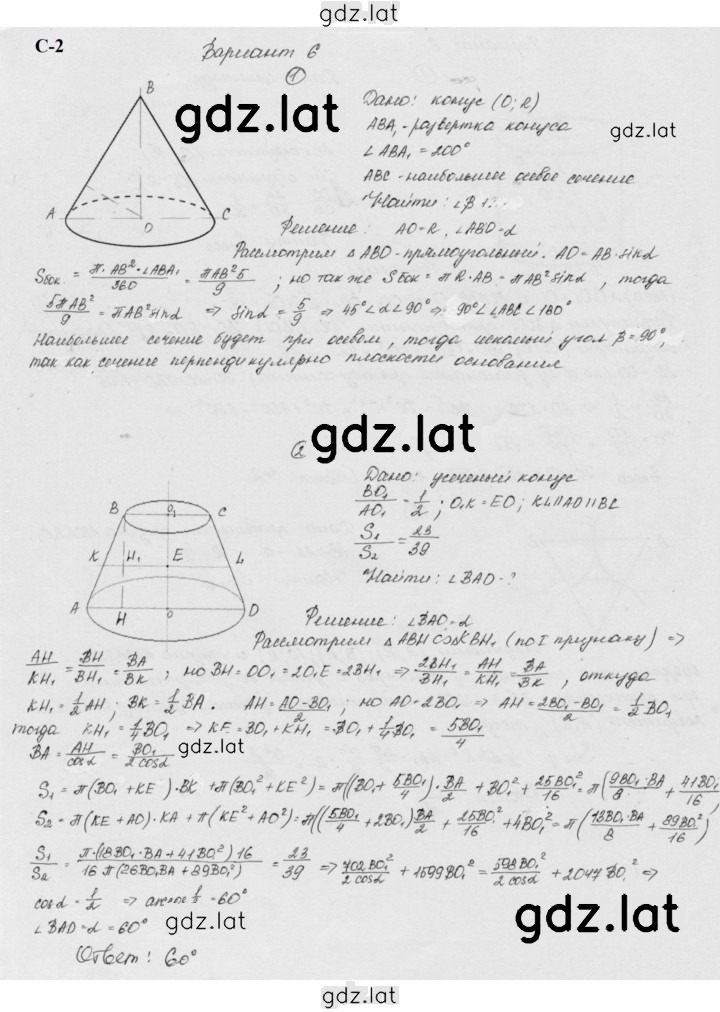 gdz.lat
С-2
Вариант 6
1
B
gdz.lat
C
A
O
C
Дано: конус (O; R)
ABA₁ - развертка конуса
gdz.lat
∠ABA₁ = 200°
ABC - наибольшее осевое сечение
Найти: ∠B
Решение: AO=R, ∠ABO=α
Рассмотрим △ABO - прямоугольный. AO = AB·sinα
Sбок. = π·AB²·∠ABA₁/360 = πAB²5/9 ; но так же Sбок = πR·AB = πAB²sinα, тогда
5πAB²/9 = πAB²sinα ⇒ sinα = 5/9 ⇒ 45°<α<90° ⇒ 90°<∠ABC<180°
Наибольшее сечение будет при осевом, тогда искомый угол β=90°,
так как сечение перпендикулярно плоскости основания
gdz.lat
2
B O₁ C
K H₁ E L
A H O D
Дано: усеченый конус
BO₁/AO₁ = 1/2 ; O₁K = EO; KL∥AO∥BC
S₁/S₂ = 23/39
Найти: ∠BAO - ?
Решение: ∠BAO=α
Рассмотрим △ABH∾△KBH₁ (по I признаку) ⇒
AH/KH₁ = BH/BH₁ = BA/BK ; но BH = OO₁ = 2O₁E = 2BH₁ ⇒ 2BH₁/BH₁ = AH/KH₁ = BA/BK , откуда
KH₁ = 1/2 AH; BK = 1/2 BA. AH = AO-BO₁/2 ; но AO = 2BO₁ ⇒ AH = 2BO₁-BO₁/2 = 1/2 BO₁
тогда KH₁ = 1/4 BO₁ ⇒ KE = BO₁+KH₁ = BO₁+1/4 BO₁ = 5BO₁/4
BA = AH/cosα = BO₁/2cosα
gdz.lat
S₁ = π(BO₁+KE)·BK+π(BO₁²+KE²) = π((BO₁+5BO₁/4)·BA/2+BO₁²+25BO₁²/16 = π(9BO₁·BA/8+41BO₁²/16)
S₂ = π(KE+AO)·KA+π(KE²+AO²) = π((5BO₁/4+2BO₁)BA/2+25BO₁²/16+4BO₁² = π(13BO₁·BA/8+89BO₁²/16)
S₁/S₂ = π·(18BO₁·BA+41BO₁²)16/16π(26BO₁BA+89BO₁²) = 23/39 ⇒ 702BO₁²/2cosα+1599BO₁² = 598BO₁²/2cosα+2047BO₁² ⇒
cosα = 1/2 ⇒ arccos 1/2 = 60°
∠BAO = α = 60°
gdz.lat
gdz.lat
Ответ: 60°
gdz.lat